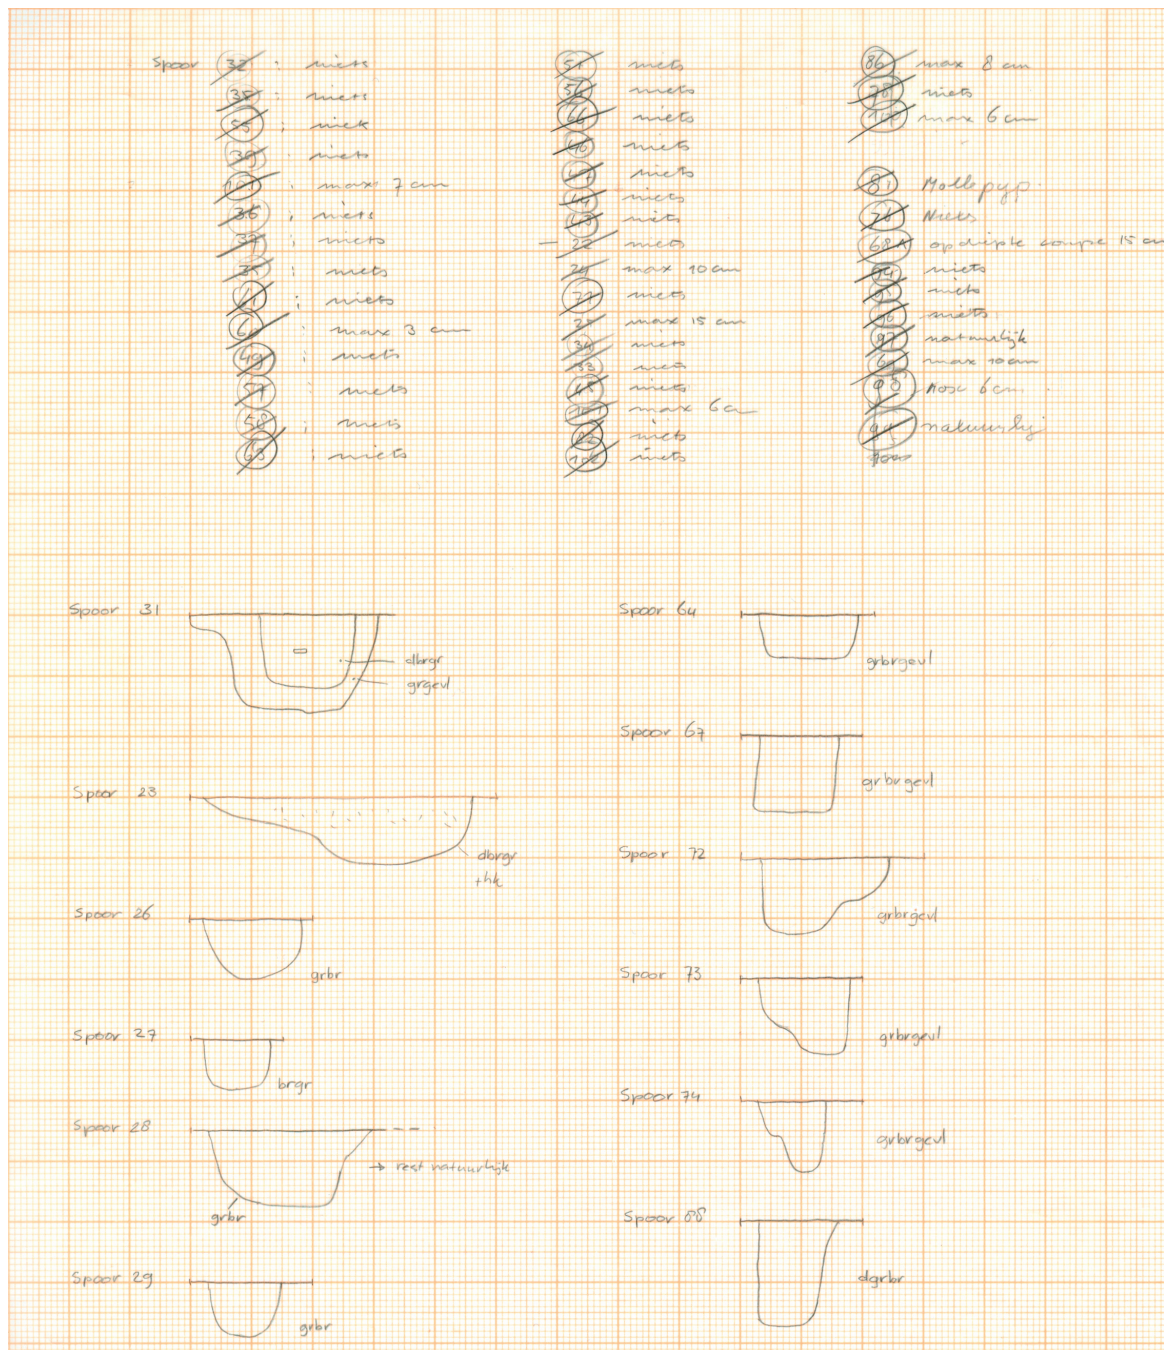 Spoor 32 : niets
35 : niets
55 : niets
39 niets
101 : max 7 cm
36 : niets
37 : niets
: niets
61 : niets
: max 3 cm
49 : niets
57 : niets
58 : niets
63 : niets
51 niets
56 niets
66 niets
46 niets
47 niets
44 niets
43 niets
22 niets
max 10 cm
71 niets
max 15 cm
34 niets
33 niets
48 niets
max 6 cm
niets
102 niets
86 max 8 cm
niets
max 6 cm
81 Mollepijp
76 Niets
68A opdiepte coupe 15 cm
94 niets
95 niets
96 niets
97 natuurlijk
max 10 cm
98 max 6 cm
99 natuurlijk
Spoor 31
dbrgr
grgevl
Spoor 23
dbrgr
+hk
Spoor 26
grbr
Spoor 27
brgr
Spoor 28
→ rest natuurlijk
grbr
Spoor 29
grbr
Spoor 64
grbrgevl
Spoor 67
grbrgevl
Spoor 72
grbrgevl
Spoor 73
grbrgevl
Spoor 74
grbrgevl
Spoor 88
dgrbr